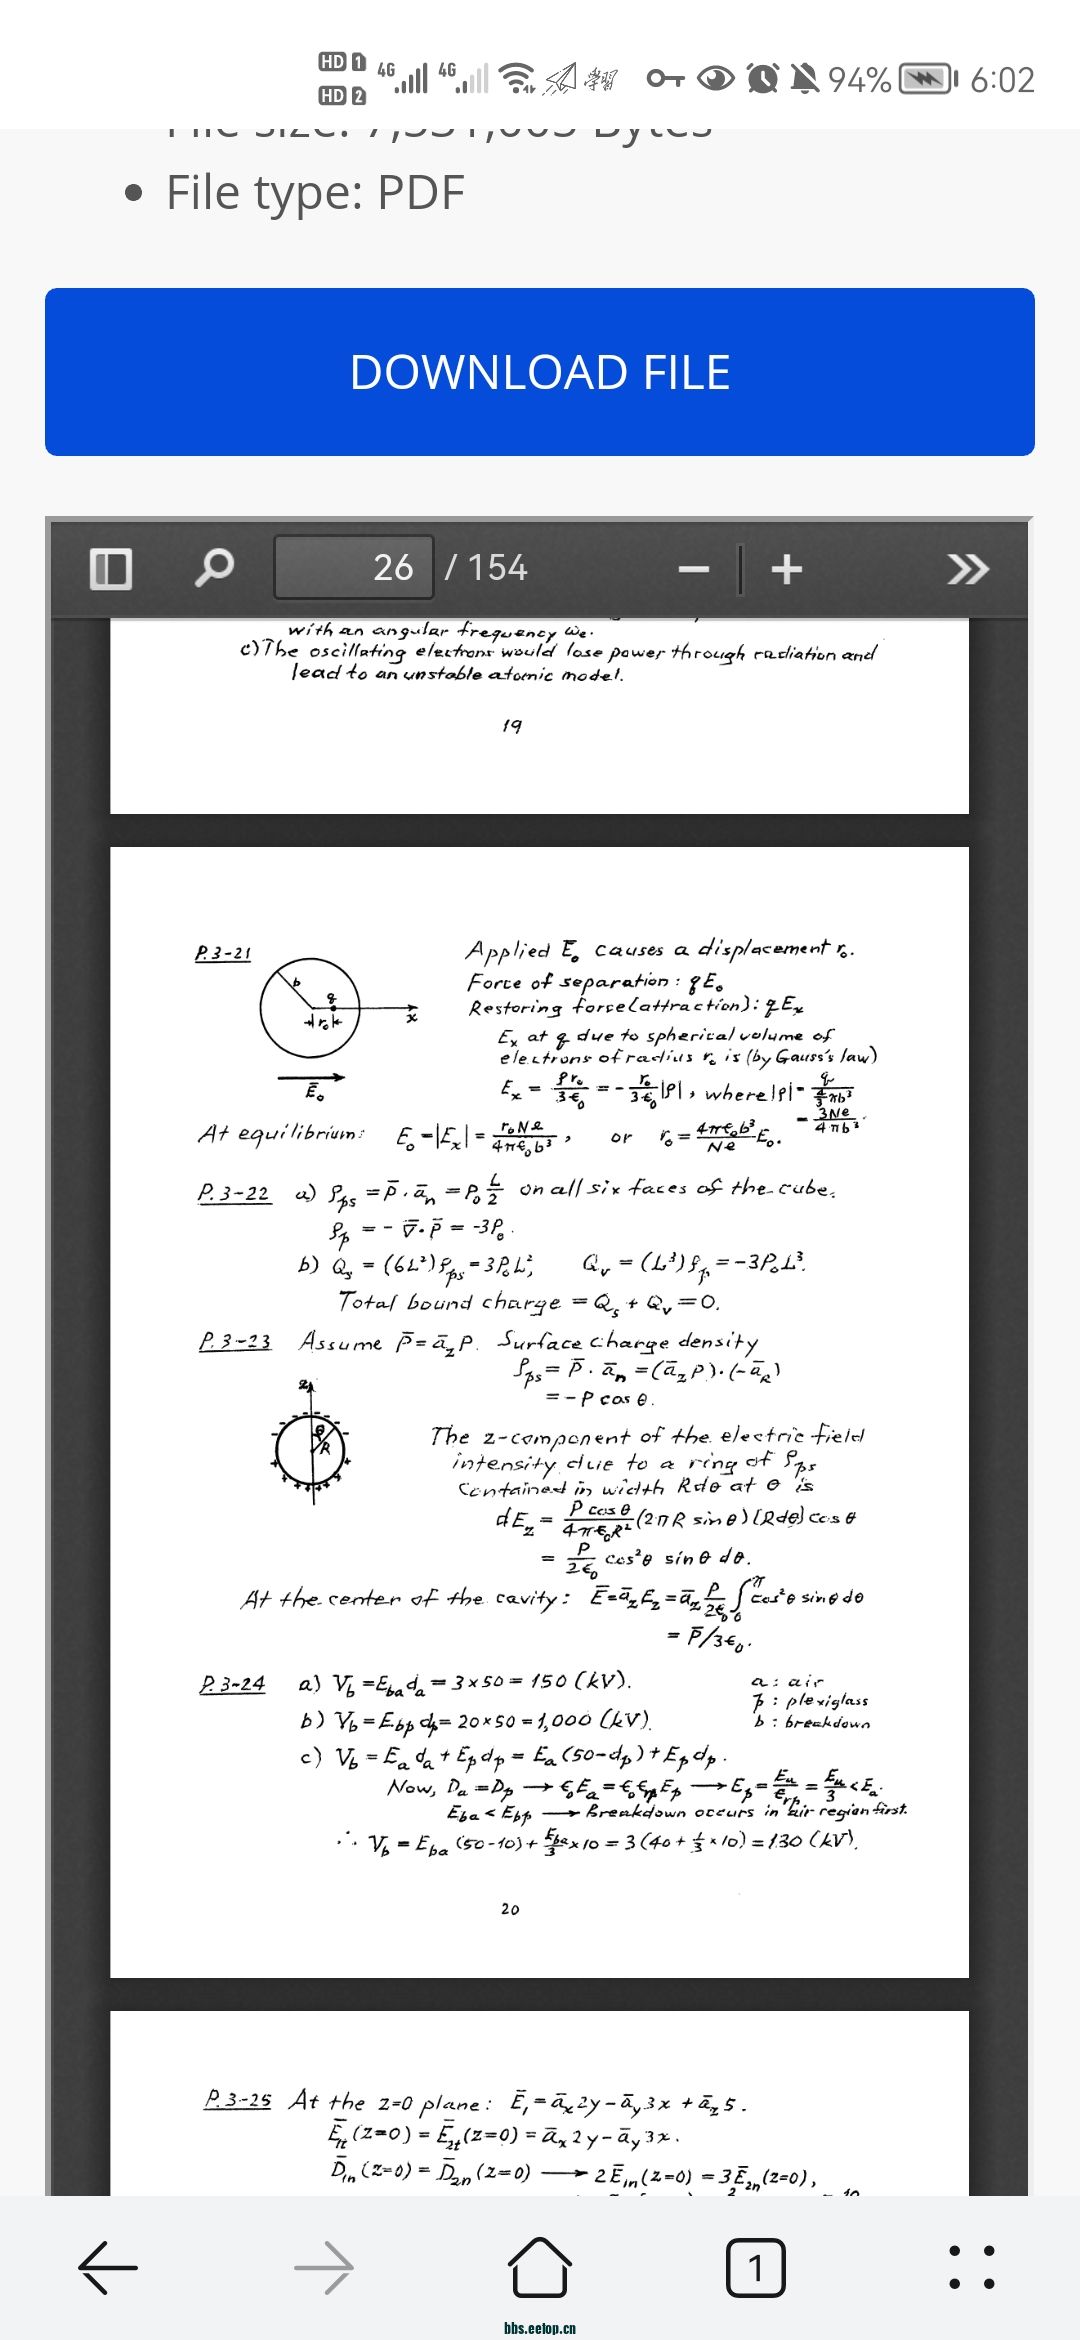 HD 1 4G 4G 學習 94% 6:02
HD 2
File size: 7,551,005 Bytes
• File type: PDF
DOWNLOAD FILE
26 / 154
with an angular frequency ωe.
c) The oscillating electrons would lose power through radiation and
lead to an unstable atomic model.
19
P.3-21 Applied Ē₀ causes a displacement r₀.
Force of separation: qE₀
Restoring force (attraction): qEₓ
Eₓ at q due to spherical volume of
electrons of radius r₀ is (by Gauss's law)
Eₓ = ρr₀/3ϵ₀ = - r₀/3ϵ₀ |ρ|, where |ρ| = q/(4/3 πb³)
= 3Ne/4πb³.
b q r₀ x
Ē₀
At equilibrium: E₀ = |Eₓ| = r₀Ne/4πϵ₀b³, or r₀ = 4πϵ₀b³/Ne E₀.
P.3-22 a) ρps = P̄·ān = P₀ L/2 on all six faces of the cube.
ρp = - ∇̄·P̄ = -3P₀.
b) Qs = (6L²)ρps = 3P₀L³, Qv = (L³)ρp = -3P₀L³.
Total bound charge = Qs + Qv = 0.
P.3-23 Assume P̄ = āz P. Surface charge density
ρps = P̄·ān = (āz P)·(-āR)
= -P cos θ.
z θ R
The z-component of the electric field
intensity due to a ring of ρps
contained in width Rdθ at θ is
dEz = P cos θ/4πϵ₀R² (2πR sin θ)(Rdθ) cos θ
= P/2ϵ₀ cos²θ sin θ dθ.
At the center of the cavity: Ē = āz Ez = āz P/2ϵ₀ ∫₀^π cos²θ sin θ dθ
= P̄/3ϵ₀.
P.3-24 a) Vb = Eba da = 3×50 = 150 (kV). a: air
p: plexiglass
b) Vb = Ebp dp = 20×50 = 1,000 (kV). b: breakdown
c) Vb = Ea da + Ep dp = Ea (50-dp) + Ep dp.
Now, Da = Dp → ϵ₀Ea = ϵ₀ϵrp Ep → Ep = Ea/ϵrp = Ea/3 < Ea.
Eba < Ebp → Breakdown occurs in air region first.
∴ Vb = Eba (50-10) + Eba/3 × 10 = 3(40 + 1/3 × 10) = 130 (kV).
20
P.3-25 At the z=0 plane: Ē₁ = āx 2y - āy 3x + āz 5.
Ē1t (z=0) = Ē2t (z=0) = āx 2y - āy 3x.
D̄1n (z=0) = D̄2n (z=0) → 2Ē1n (z=0) = 3Ē2n (z=0),
1
bbs.eetop.cn